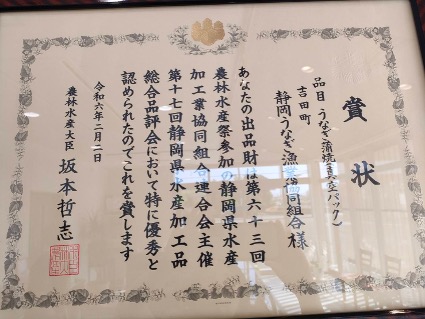 賞状
品目 うなぎ蒲焼(真空パック)
吉田町
静岡うなぎ漁業協同組合様
あなたの出品財は第六十三回
農林水産祭参加の静岡県水産
加工業協同組合連合会主催
第十七回静岡県水産加工品
総合品評会において特に優秀と
認められたのでこれを賞します
令和六年二月二日
農林水産大臣 坂本哲志